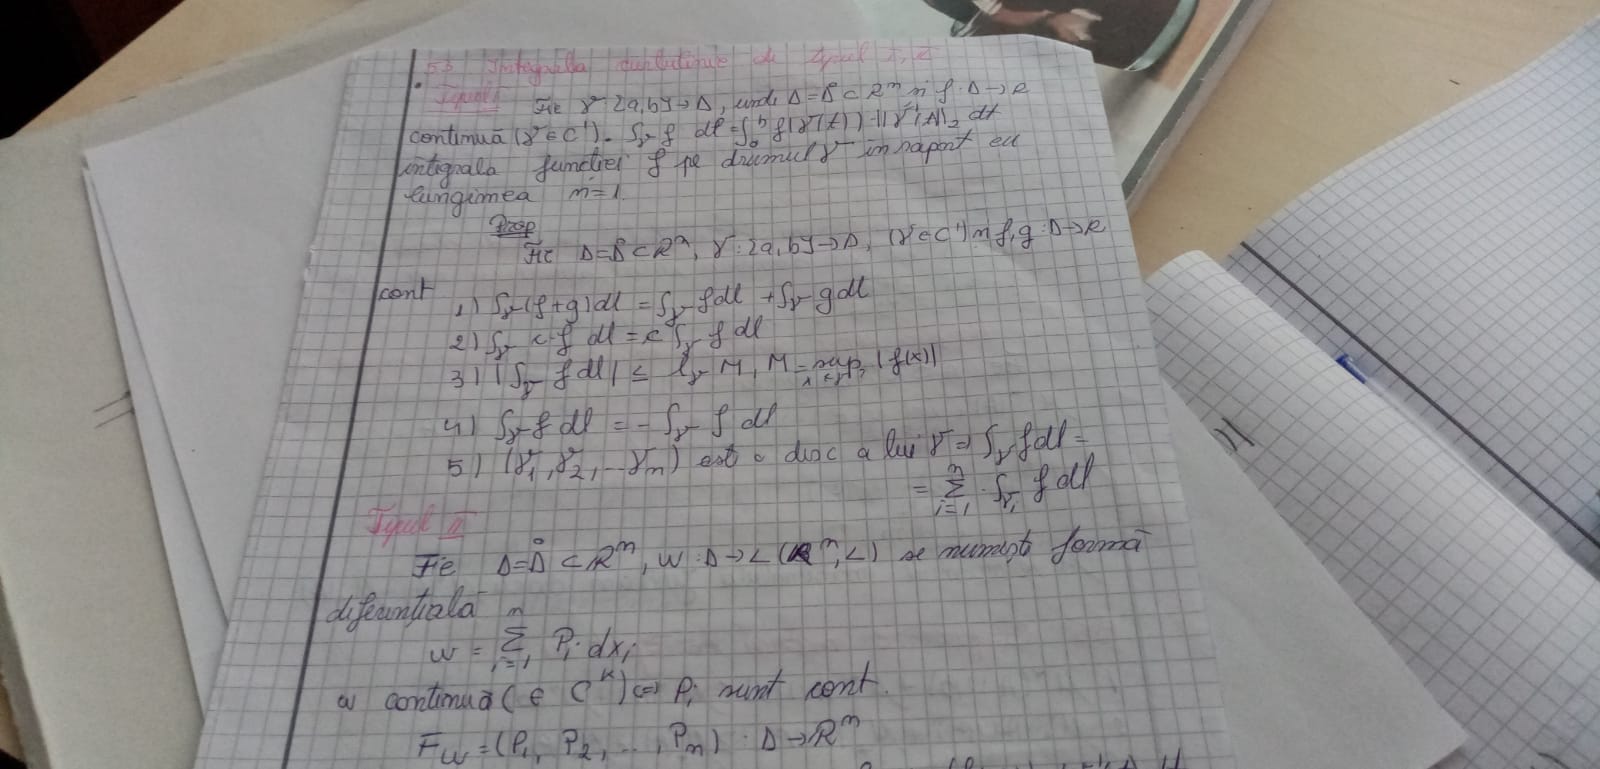 53 Integrala curbilinie de tipul I, II
Tipul I Fie γ:[a,b]→D, unde D=D̊⊂R^n și f:D→R
continuă (γ∈C¹). ∫_γ f dl = ∫_a^b f(γ(t))·||γ'(t)||_2 dt
integrala funcției f pe drumul γ în raport cu
lungimea n=1.
Prop
Fie D=D̊⊂R^n, γ:[a,b]→D, (γ∈C¹) și f,g:D→R
cont
1) ∫_γ(f+g)dl = ∫_γ fdl + ∫_γ gdl
2) ∫_γ c·f dl = c ∫_γ f dl
3) |∫_γ f dl| ≤ l_γ M, M = sup |f(x)|
4) ∫_γ f dl = - ∫_γ- f dl
5) (γ_1, γ_2, ... γ_n) este o desc a lui γ ⇒ ∫_γ fdl =
= Σ_{i=1}^n ∫_{γ_i} f dl
Tipul II
Fie D=D̊⊂R^n, w:D→L(R^n, L) se numește formă
diferențială
w = Σ_{i=1}^n P_i dx_i
w continuă (∈ C^k) ⇔ P_i sunt cont.
F_w = (P_1, P_2, ..., P_n) : D→R^n